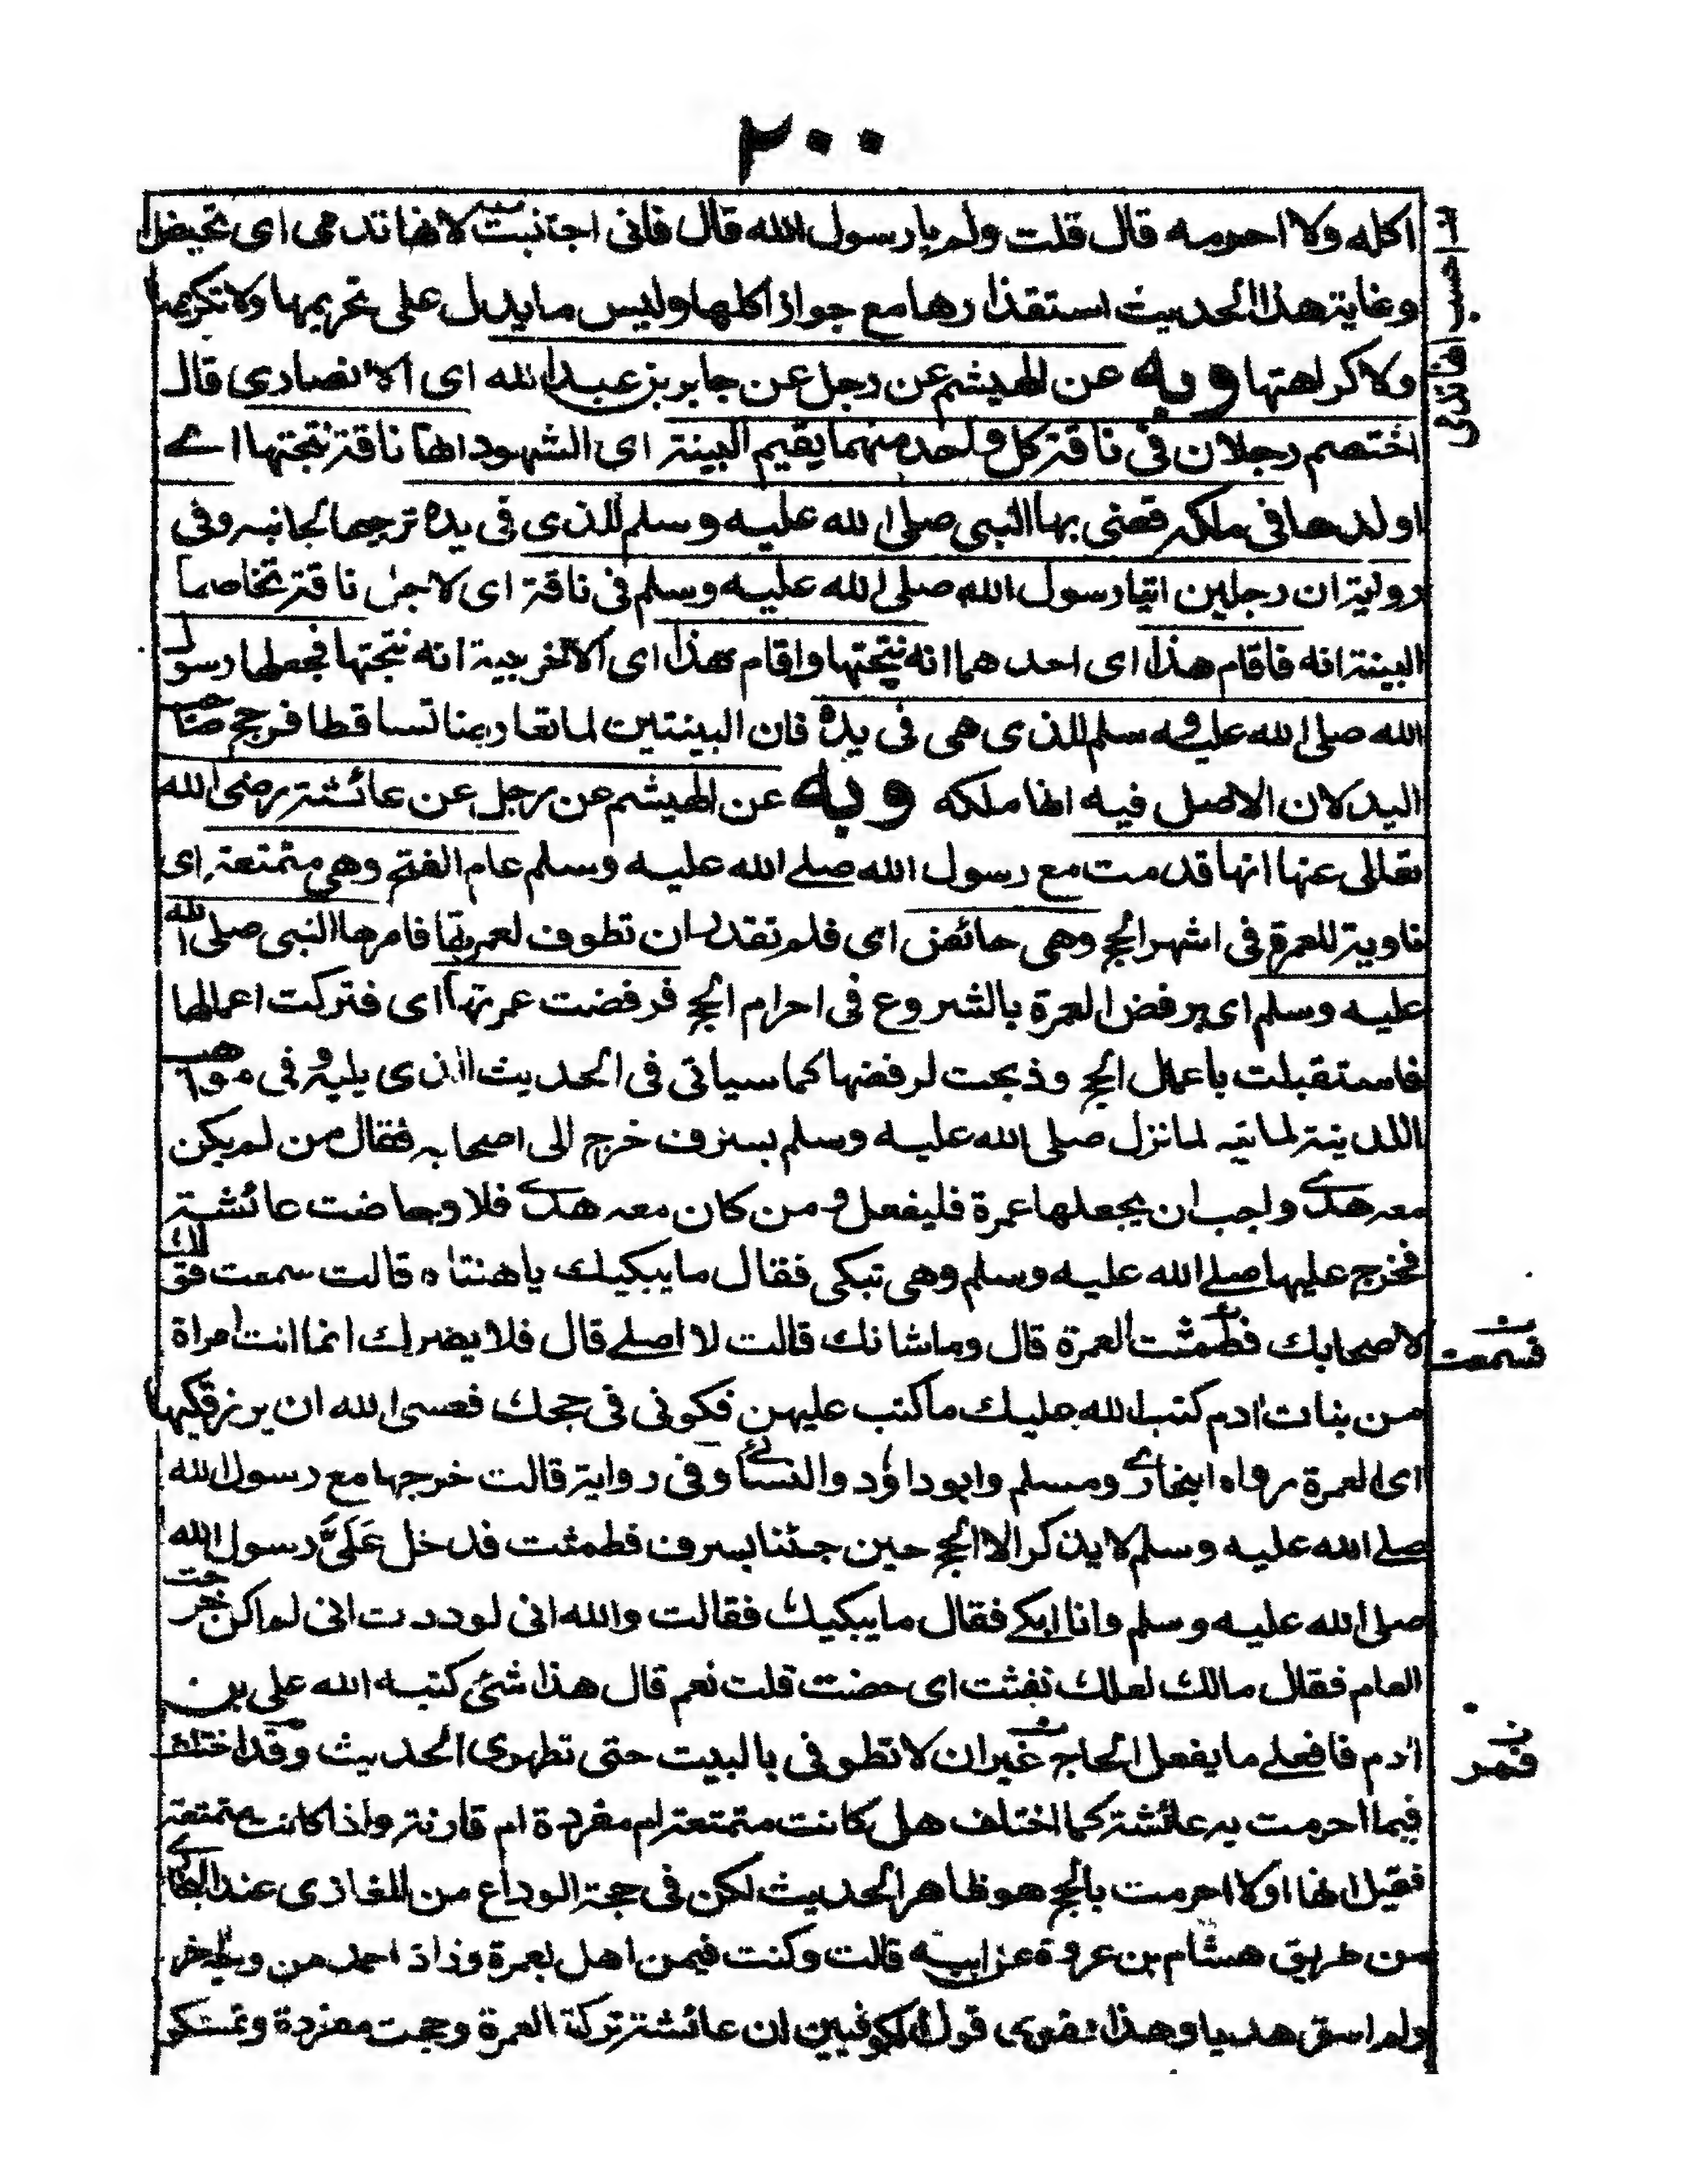 ٢٠٠
اكله ولا احرمه قال قلت ولم يا رسول الله قال فانى اجتنبت لانها تدمى اى تحيض
وغاية هذا الحديث استقذارها مع جواز اكلها وليس ما يدل على تحريمها ولا تكريمها
ولا كراهتها وبه عن الهيثم عن رجل عن جابر بن عبد الله اى الانصارى قال
اختصم رجلان فى ناقة كل واحد منهما يقيم البينة اى الشهود انها ناقة نتجتها اے
اولدها فى ملكه فقضى بها النبى صلى الله عليه وسلم للذى فى يده ترجيحا لجانبه وفى
رواية ان رجلين اتيا رسول الله صلى الله عليه وسلم فى ناقة اى لاجل ناقة تخاصما
البينة انه فاقام هذا اى احدهما انه نتجتها واقام هذا اى الآخر بينة انه نتجتها فجعلها رسول
الله صلى الله عليه وسلم للذى هى فى يده فان البينتين لما تعارضنا تساقطا فرجح صاحب
اليد لان الاصل فيه انها ملكه وبه عن الهيثم عن رجل عن عائشة رضى الله
تعالى عنها انها قدمت مع رسول الله صلے الله عليه وسلم عام الفتح وهى متمتعة اى
ناوية للعمرة فى اشهر الحج وهى حائض اى فلم تقدر ان تطوف لعمرتها فامرها النبى صلى الله
عليه وسلم اى برفض العمرة بالشروع فى احرام الحج فرفضت عمرتها اى فتركت اعمالها
فاستقبلت باعمال الحج وذبحت لرفضها كما سياتى فى الحديث الذى يليه وفى مواهب
اللدينة لما نزل صلى الله عليه وسلم بسرف خرج الى اصحابه فقال من لم يكن
معه هدى واجب ان يجعلها عمرة فليفعل ومن كان معه هدى فلا وحاضت عائشة
فخرج عليها صلے الله عليه وسلم وهى تبكى فقال ما يبكيك يا هنتاه قالت سمعت قولك
لاصحابك فطمثت العمرة قال وما شانك قالت لا اصلے قال فلا يضرك انما انت امراة
من بنات ادم كتب الله عليك ما كتب عليهن فكونى فى حجك فعسى الله ان يرزقكيها
اى العمرة رواه البخارى ومسلم وابو داؤد والنسائى وفى رواية قالت خرجها مع رسول الله
صلے الله عليه وسلم لا يذكر الا الحج حين جئنا بسرف فطمثت فدخل عَلَيَّ رسول الله
صلى الله عليه وسلم وانا ابكے فقال ما يبكيك فقالت والله انى لوددت انى لم اكن خرجت
العام فقال مالك لعلك نفثت اى حضت قلت نعم قال هذا شئ كتبه الله على بن
ادم فافعلے ما يفعل الحاج غير ان لا تطوفى بالبيت حتى تطهرى الحديث وقد اختلف
فيما احرمت به عائشة كما اختلف هل كانت متمتعة ام مفردة ام قارنة واذا كانت متمتعة
فقيل انها اولا احرمت بالحج هو ظاهر الحديث لكن فى حجة الوداع من المغازى عند البخارى
من طريق هشام بن عروة عن ابيه قالت وكنت فيمن اهل بعمرة وزاد احمد من وجه اخر
ولم اسق هديا وهذا يقوى قول الكوفيين ان عائشة تركة العمرة وحجت مفردة وتمسكو
فسمعت